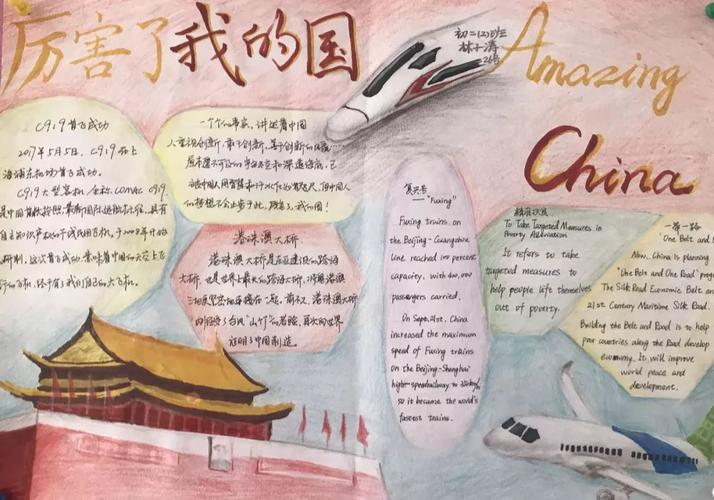 厉害了我的国
初二(2)班
林子涛
26号
Amazing
China
C919首飞成功
2017年5月5日，C919在上
海浦东机场首飞成功。
C919大型客机，全称COMAC C919，
是中国首款按照最新国际适航标准，具有
自主知识产权的干线民用飞机，于2008年开始
研制。这次首飞成功，意味着中国的天空上飞
行的飞机终于有了我们自己的大飞机。
一个个的事实，讲述着中国
人重视创新，敢于创新，善于创新的
港珠澳大桥
港珠澳大桥是
大桥，也是世界上最长的跨海大桥，
港珠澳大桥
台风"山竹"的考验，再次向世界
证明了中国制造。
复兴号
—"Fuxing"
Fuxing trains on
the Beijing-Guangzhou
line reached 100 percent
capacity, with
passengers carried.
On Sept. 21st, China
increased the maximum
speed of Fuxing trains
on the Beijing-Shanghai
high-speed railway to
so it became the world's
fastest trains.
精准扶贫
To Take Targeted Measures in
Poverty Alleviation
It refers to take
targeted measures to
help people life themselves
out of poverty.
一带一路
One Belt and
Now, China is planning
"One Belt and One Road"
The Silk Road Economic Belt and
21st Century Maritime Silk Road.
Building the Belt and Road is to help
poor countries along the Road develop
economy. It will improve
world peace and
development.